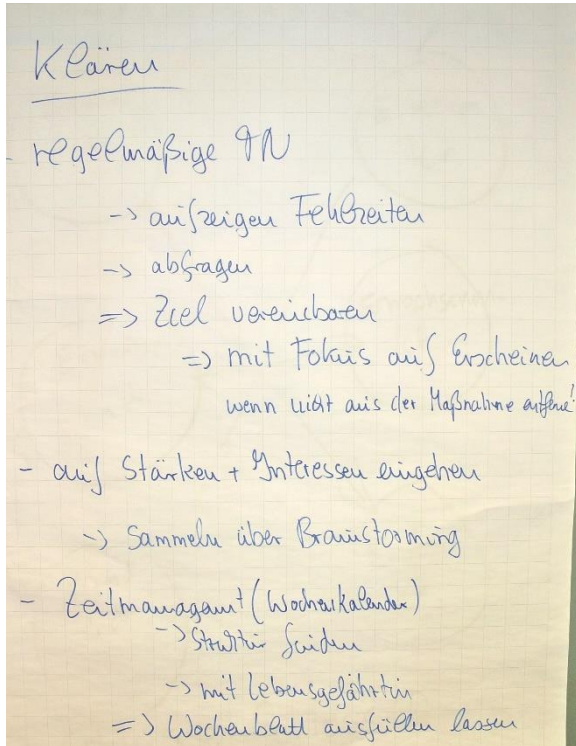 Klären
- regelmäßige TN
-> aufzeigen Fehlzeiten
-> abfragen
=> Ziel vereinbaren
=> mit Fokus auf Erscheinen
wenn nicht aus der Maßnahme
- auf Stärken + Interessen eingehen
-> Sammeln über Brainstorming
- Zeitmanagemt (Wochenkalender)
-> Struktur finden
-> mit Lebensgefährtin
=> Wochenblatt ausfüllen lassen